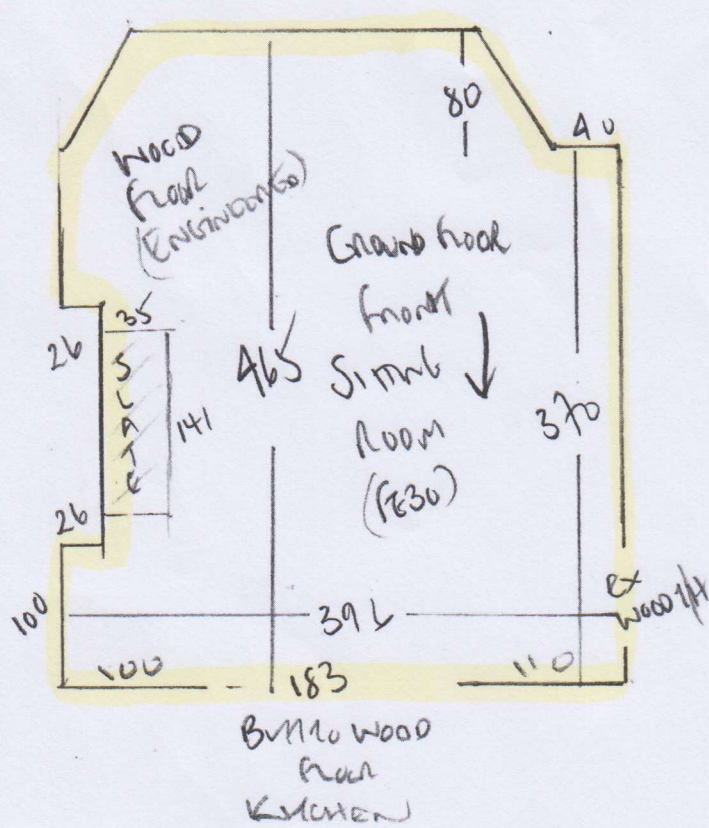 80
40
WOOD
FLOOR
(ENGINEERED)
GROUND FLOOR
FRONT
SITTING
ROOM
(FE30)
35
26
SLATE
141
465
370
26
100
391
EX
WOOD T/H
100
183
110
BUTT TO WOOD
FLOOR
KITCHEN